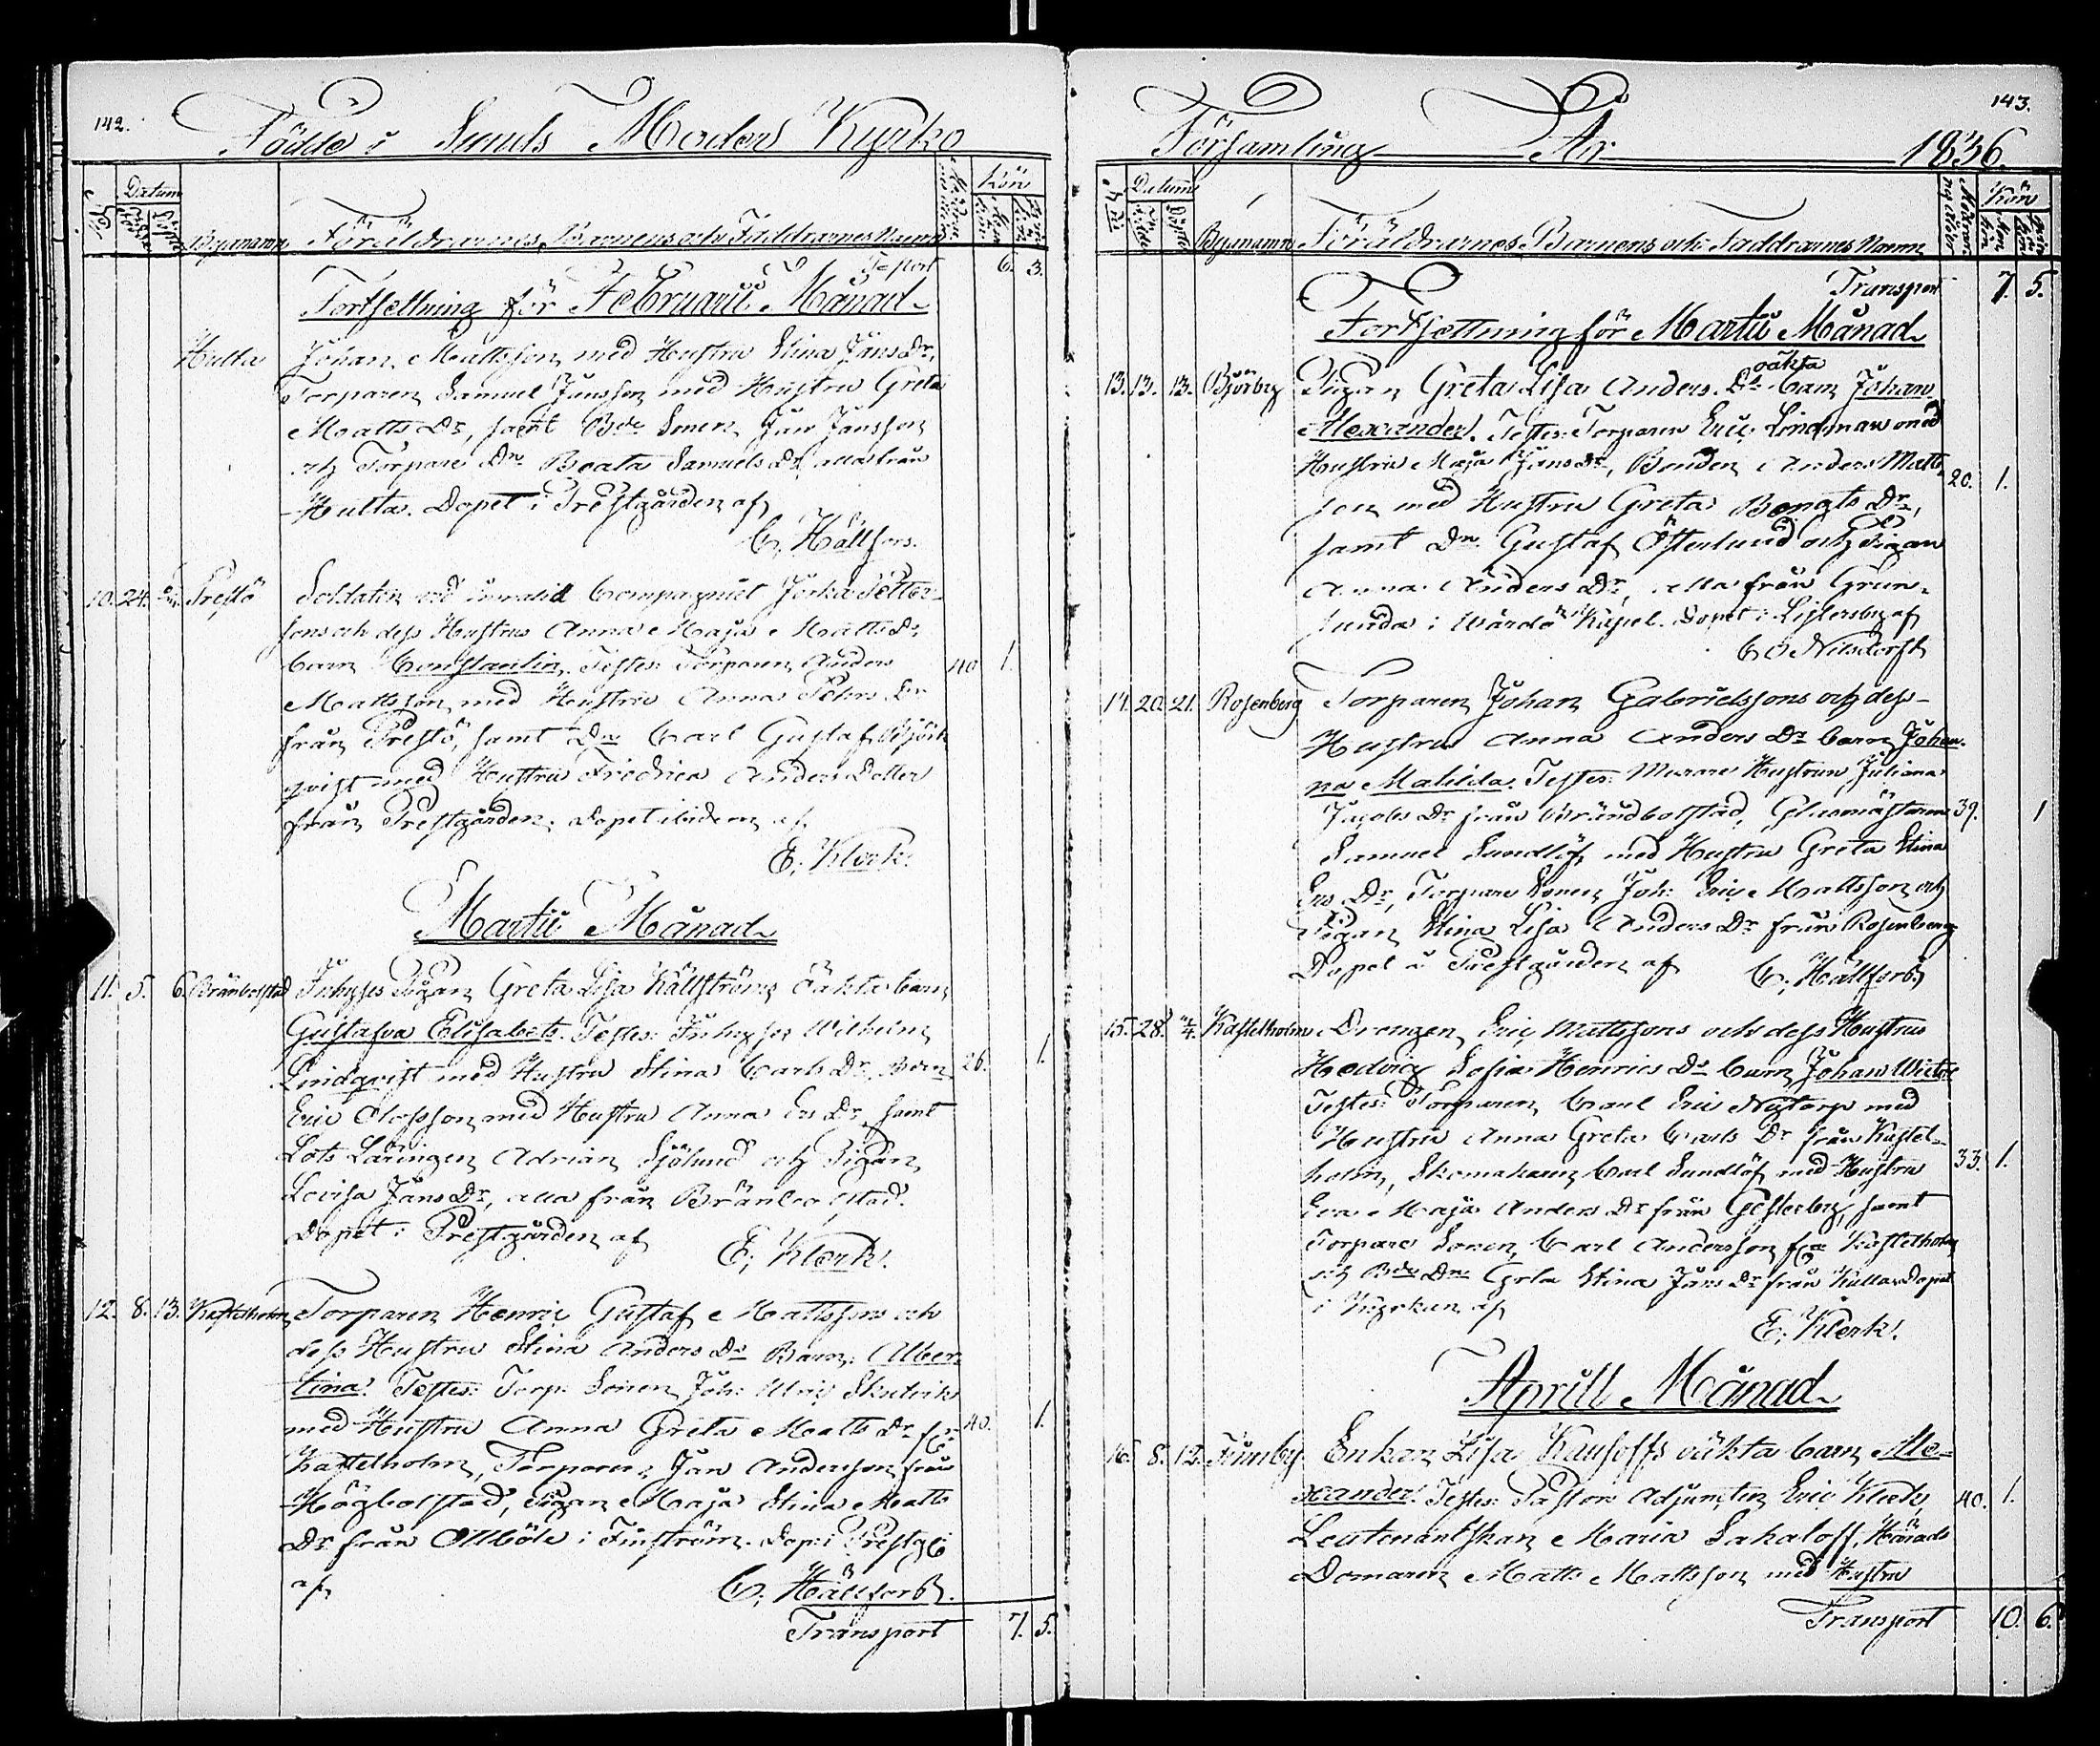 142.
Födde i Sunds Moder Kyrko
No
Datum
Födde
Döpte
Bynamnn
Föräldrarnes, Barnens och Faddrarnes Namn
Kön
T=sport 6. 3.
Fortsettning för Februarii Månad
Hulta Johan Mattsson med Hustru Stina Jans Dr,
Torparen Samuel Jansson med Hustru Greta
Matts Dr, samt Bde Sonen Jan Jansson
och Torpare Dn Beata Samuels Dr, alla från
Hulta. Döpet i Prestgården af
C. Hällfors.
10. 24. Prestö Soldaten vid invalid Compagniet Petter-
sons och dess Hustrus Anna Maja Matts Dr
barn Constantin. Testes: Torparen Anders 40 1.
Mattsson med Hustru Anna Pehrs Dr
från Prestö, samt Dn Carl Gustaf Björk
qvist med Hustru Fredrica Anders Dotter
från Prestgården. Döpet ibidem af
E. Klerk.
Martii Månad
11. 5. 6. Bränbolstad Inhyses Pigan Greta Lisa Källströms oäkta barn
Gustafva Elisabeth. Testes: Inhyses Wilhelm
Lindqvist med Hustru Stina Carls Dr, 26. 1.
Eric Olofsson med Hustru Anna Ers Dr, samt
Lots Läringen Adrian Sjölund och Pigan
Lovisa Jans Dr, alla från Bränbolstad.
Döpet i Prestgården af E. Klerk.
12. 8. 13. Kastelholm Torparen Henric Gustaf Mattssons och
dess Hustrus Stina Anders Dr Barn: Alber-
tina. Testes: Torp: Sonen Joh: Ulric
med Hustru Anna Greta Matts Dr frn 40. 1.
Kastelholm, Torparen Jan Andersson från
Högbolstad, Pigan Maja Stina Matts
Dr från Ottböle i Finström. Döp: i Prestg:
af C. Hällfors.
Transport 7. 5.
143.
Församling År 1836.
No
Datum
Födde
Döpte
Bynamn
Föräldrarnes, Barnens och Faddrarnes Namn
Kön
Transport 7. 5.
Fortsettning för Martii Månad
oäkta
13. 13. 13. Björby Pigan Greta Lisa Anders Drs barn Johan
Alexander. Testes: Torparen Eric Lindman med
Hustru Maja Jans Dr, Bonden Anders Matts- 20. 1.
son med Hustru Greta Bengts Dr,
samt Dn Gustaf Österlund och Pigan
Anna Anders Dr, alla från Grun-
sunda i Wårdö Kapel. Döpet i Listersby af
C O Nitsdorft
14. 20. 21. Rosenberg Torparen Johan Gabrielssons och dess
Hustrus Anna Anders Dr barn Johan-
na Matilda. Testes: Murare Hustrun Juliana
Jacobs Dr från Brändbolstad, Glasmästaren 39. 1
Samuel Sundlöf med Hustru Greta Stina
Ers Dr, Torpare Sonen Joh: Eric Mattsson och
Pigan Stina Lisa Anders Dr från Rosenberg.
Döpet i Prestgården af C. Hällfors
15. 28. 4. Kastelholm Drengen Eric Mattssons och dess Hustrus
Hedvig Sofia Henrics Dr barn Johan Victor
Testes: Torparen Carl Eric Nytorp med
Hustru Anna Greta Carls Dr från Kastel-
holm, Skomakaren Carl Sundlöf med Hustru 33. 1.
Eva Maja Anders Dr från Gesterby, samt
Torpare Sonen Carl Andersson frn Kastelholm
och Bde Dn Greta Stina Jans Dr från Kulla. Döpet
i Kyrkan af
E. Klerk.
Aprill Månad
16. 8. 12. Finnby Enkan Lisa Kausoffs oäkta barn Ale-
xander. Testes: Pastors Adjuncten Eric Klerk 40. 1.
Leutenantskan Maria Sakaloff, Härads
Domaren Matts Mattsson med Hustru
Transport 10. 6.